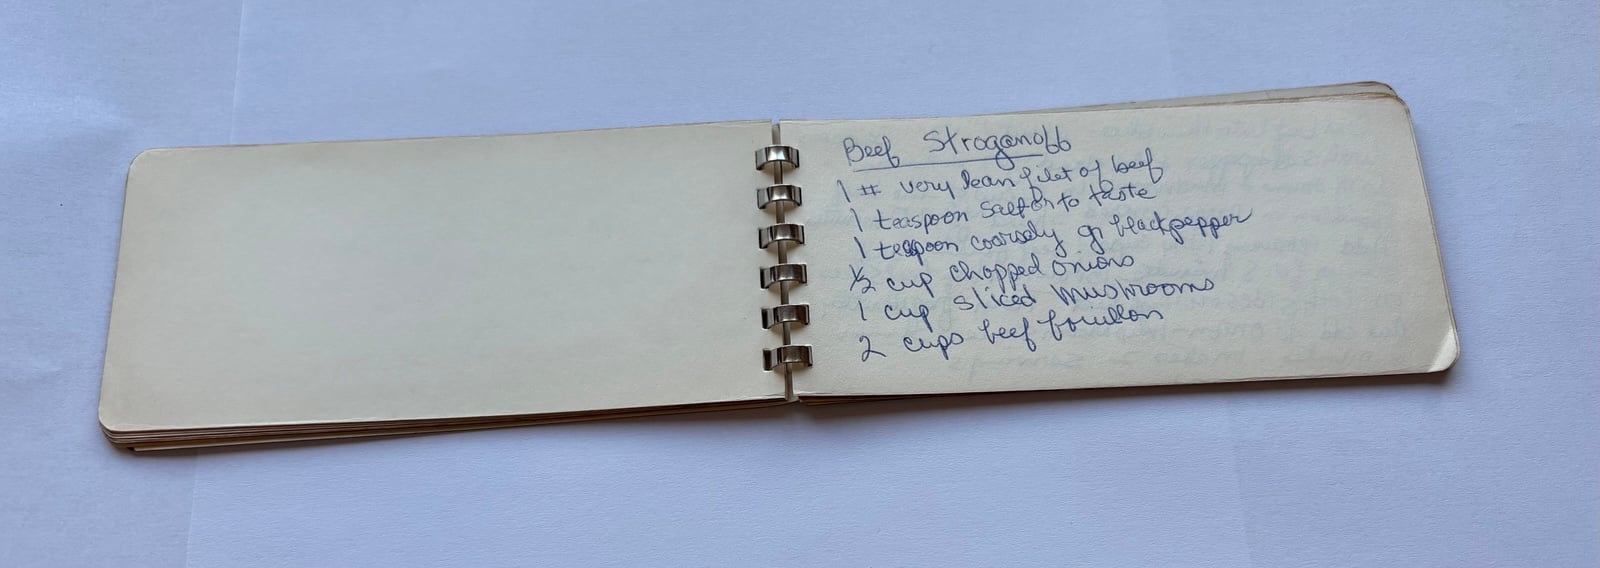 Beef Stroganoff
1 # very lean filet of beef
1 teaspoon salt or to taste
1 teaspoon coarsely gr black pepper
1/2 cup chopped onions
1 cup sliced mushrooms
2 cups beef bouillon